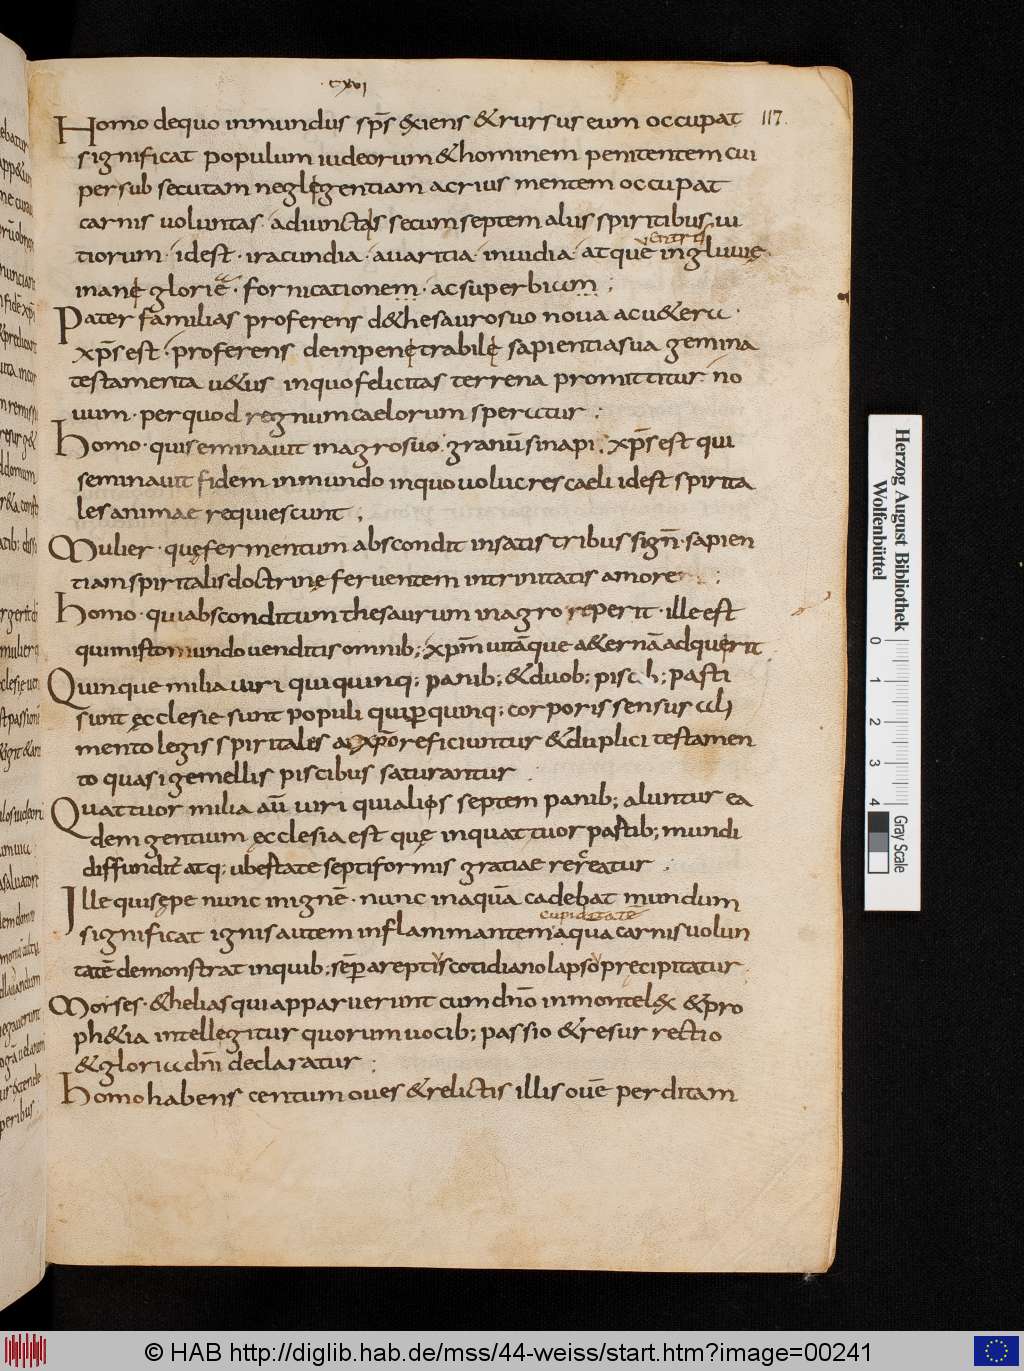 ·cxvi
117.
Homo dequo inmundus sp̄s exiens &rursus eum occupat
significat populum iudeorum &hominem penitentem cui
persub secutam neglegentiam acrius mentem occupat
carnis uoluntas · adiunctas secum septem aliis spiritibus ui
tiorum · idest · iracundia · auaritia · inuidia · atque ingluuię ·
uentris
inanę glorię · fornicationem · ac superbium ;
Pater familias proferens d&hesauro suo noua acu&era ·
xp̄s est · proferens deinpenętrabilę sapientia sua gemina
testamenta u&us inquo felicitas terrena promittitur · no
uum · per quod regnum caelorum speratur ;
homo · qui seminauit inagro suo · granū sinapi · xp̄s est qui
seminauit fidem inmundo inquo uolucres caeli idest spirita
les animae requiescunt ,
Mulier · quę fermentum abscondit insatis tribus sign̄ · sapien
tiam spiritalis doctrinę feruentem intrinitatis amore ;
homo · qui absconditum thesaurum inagro reperit · ille est
qui inisto mundo uenditis omnib; xp̄m uitāque a&ernā adquerit
Quinque milia uiri qui quinq; panib; &duob; piscib; pasti
sunt ęcclesie sunt populi qui per quinq; corporis sensus ali
mento legis spiritalis a xp̄o reficiuntur &duplici testamen
to quasi gemellis piscibus saturantur
Quattuor milia aū uiri qui aliis septem panib; aluntur ea
dem gentium ęcclesia est quę inquattuor partib; mundi
diffundit̄ atq; ubertate septiformis gratiae recreatur ;
Ille qui sępe nunc inignē · nunc inaquā cadebat mundum
cupiditatē
significat ignis autem inflammantem aqua carnis uolun
tatē demonstrat inquib; sēp areptis cotidiano lapso precipitatur
Moises · &helias qui apparuerunt cum dn̄o inmonte lex &pro
ph&ia intellegitur quorum uocib; passio &resurrectio
&gloria dn̄i declaratur ;
homo habens centum oues &relictis illis ouē perditam
Herzog August Bibliothek
Wolfenbüttel
0 1 2 3 4
Gray Scale
© HAB http://diglib.hab.de/mss/44-weiss/start.htm?image=00241